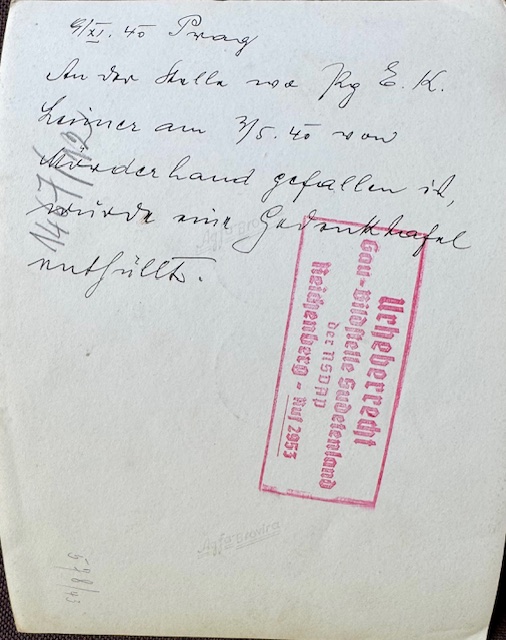 9/XI. 40 Prag
An der Stelle wo Pg E. K.
Leiner am 3/5. 40 von
Mörderhand gefallen ist,
wurde eine Gedenktafel
enthüllt.
1467/12
Urheberrecht
Gau-Bildstelle Sudetenland
der NSDAP
Reichenberg - Ruf 2953
Agfa Brovira
Agfa Brovira